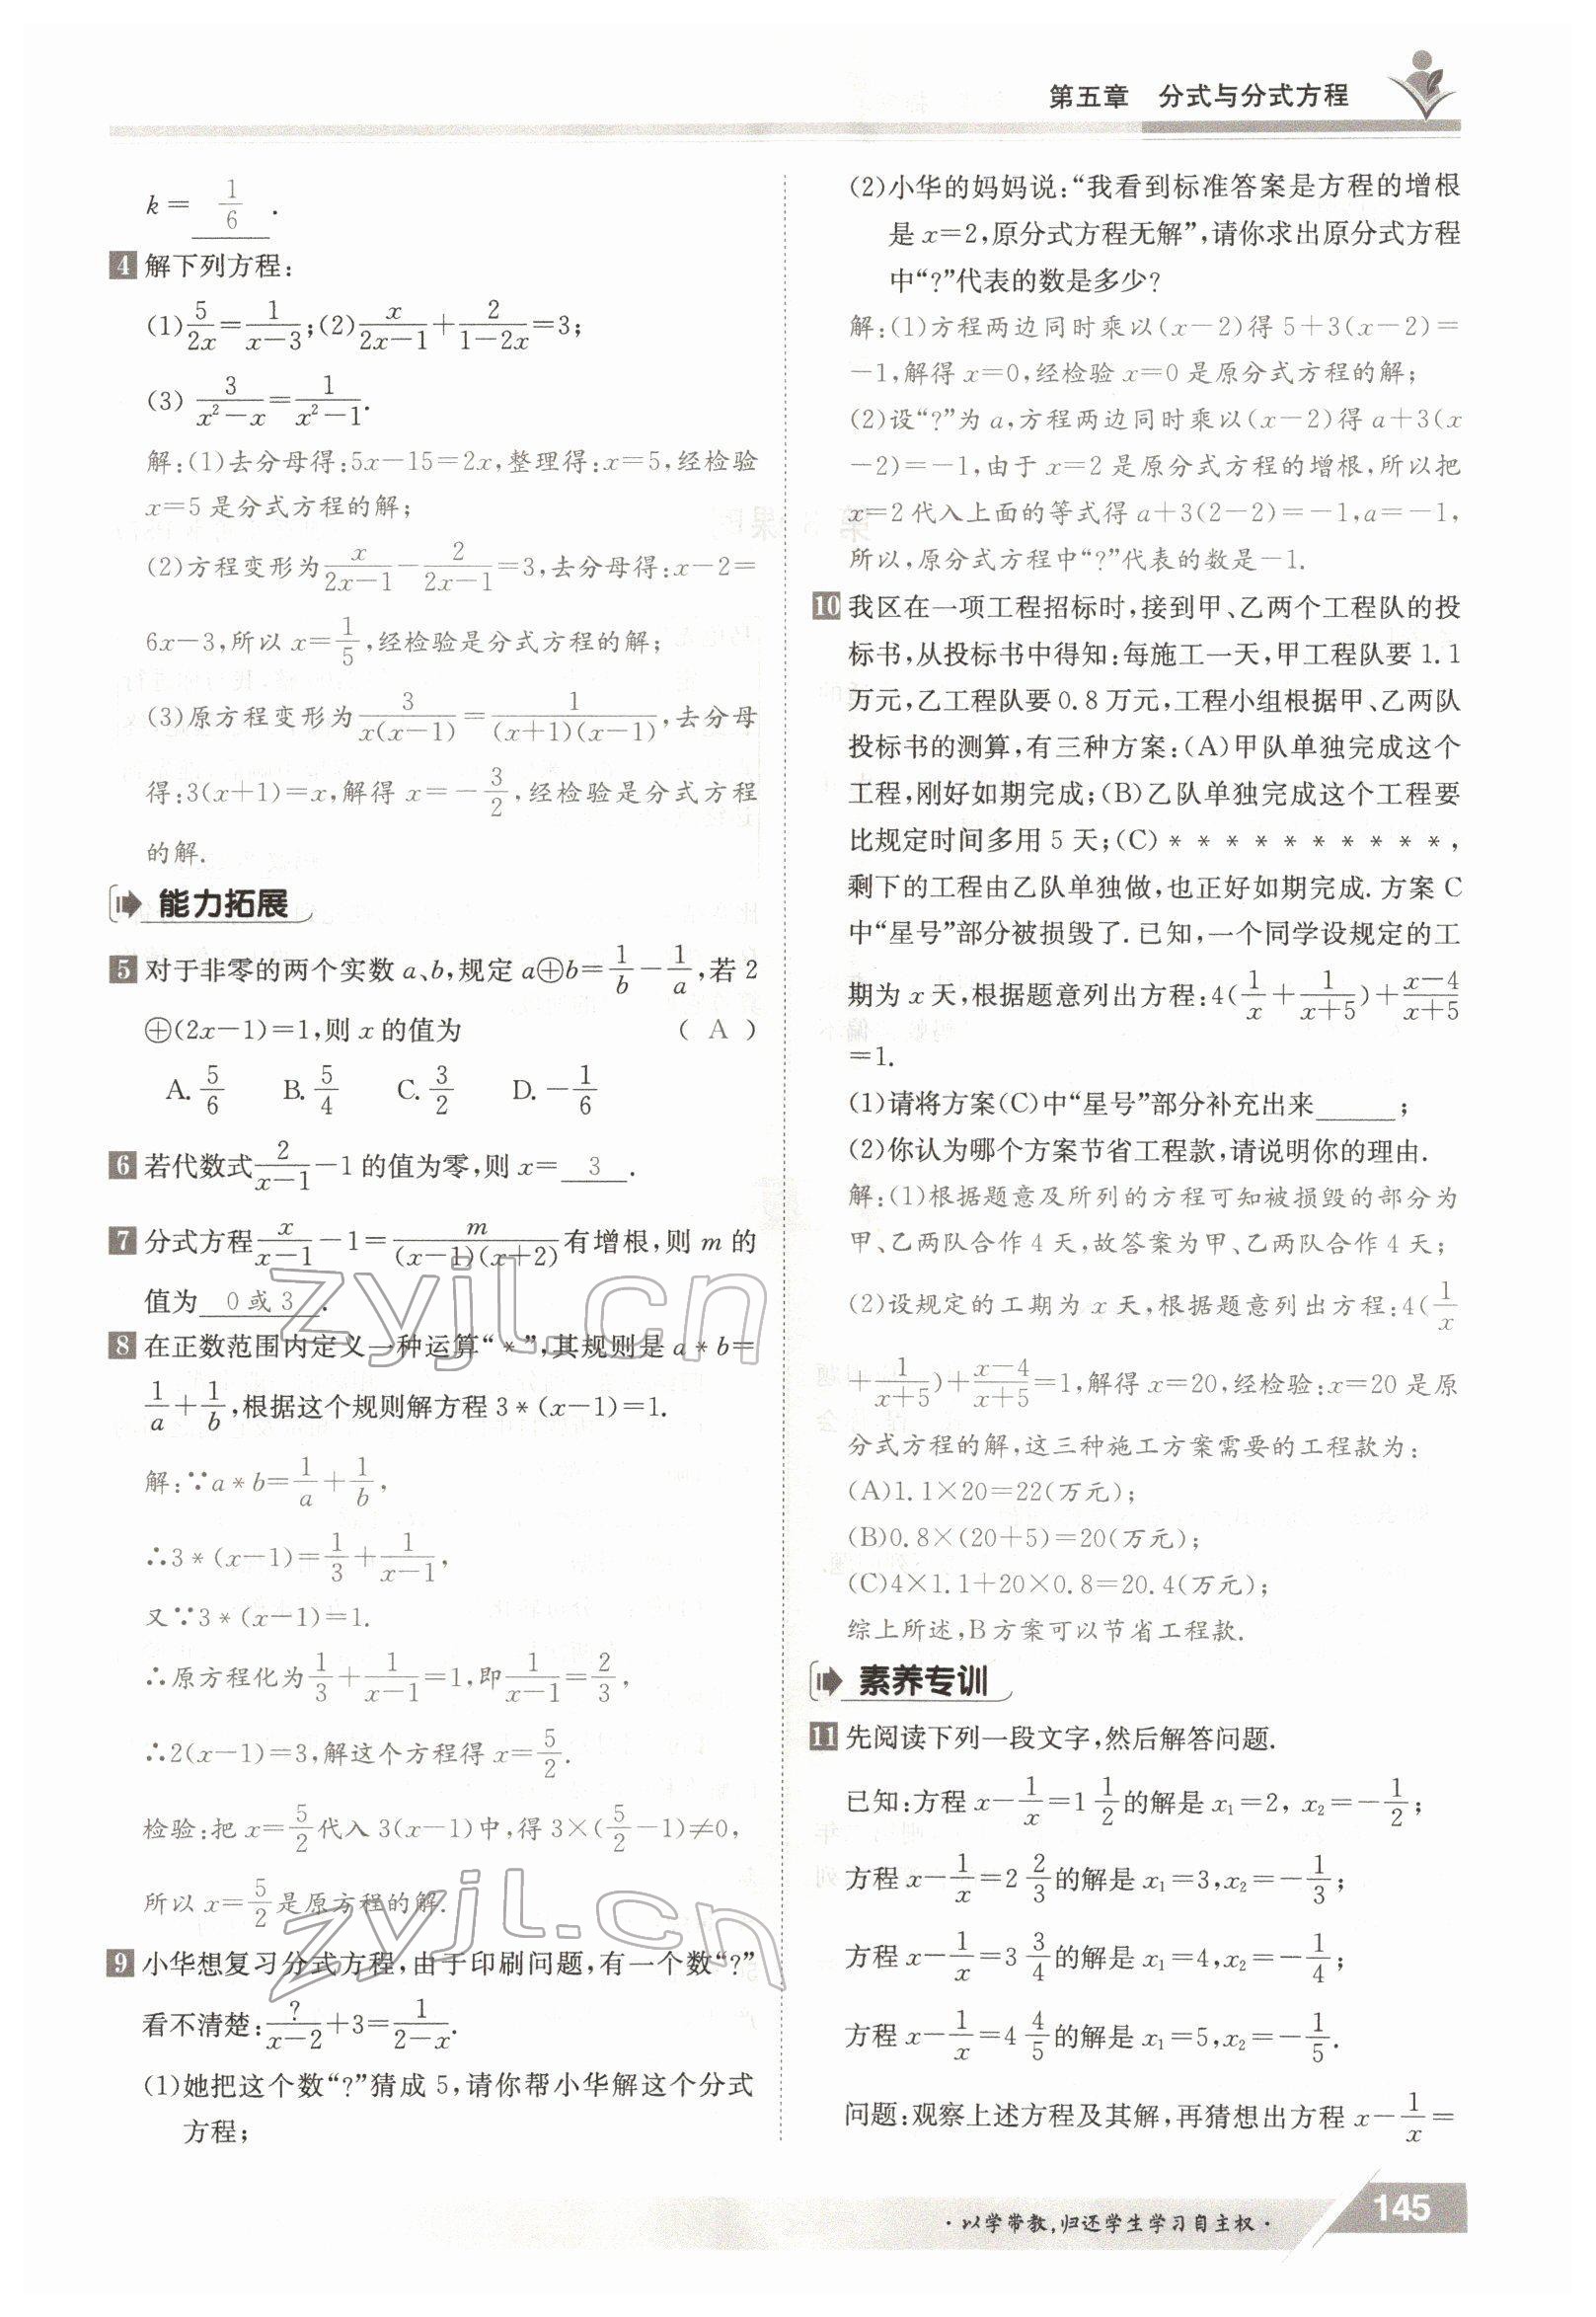 第五章 分式与分式方程
k= 1/6 .
4 解下列方程:
(1)5/2x=1/(x-3);(2)x/(2x-1)+2/(1-2x)=3;
(3) 3/(x²-x)=1/(x²-1).
解:(1)去分母得:5x-15=2x,整理得:x=5,经检验
x=5是分式方程的解;
(2)方程变形为x/(2x-1)-2/(2x-1)=3,去分母得:x-2=
6x-3,所以x=1/5,经检验是分式方程的解;
(3)原方程变形为3/(x(x-1))=1/((x+1)(x-1)),去分母
得:3(x+1)=x,解得x=-3/2,经检验是分式方程
的解.
能力拓展
5 对于非零的两个实数a、b,规定a⊕b=1/b-1/a,若2
⊕(2x-1)=1,则x的值为 ( A )
A. 5/6 B. 5/4 C. 3/2 D. -1/6
6 若代数式2/(x-1)-1的值为零,则x= 3 .
7 分式方程x/(x-1)-1=m/((x-1)(x+2))有增根,则m的
值为 0或3 .
8 在正数范围内定义一种运算“*”,其规则是a*b=
1/a+1/b,根据这个规则解方程3*(x-1)=1.
解:∵a*b=1/a+1/b,
∴3*(x-1)=1/3+1/(x-1),
又∵3*(x-1)=1.
∴原方程化为1/3+1/(x-1)=1,即1/(x-1)=2/3,
∴2(x-1)=3,解这个方程得x=5/2.
检验:把x=5/2代入3(x-1)中,得3×(5/2-1)≠0,
所以x=5/2是原方程的解.
9 小华想复习分式方程,由于印刷问题,有一个数“?”
看不清楚:?/(x-2)+3=1/(2-x).
(1)她把这个数“?”猜成5,请你帮小华解这个分式
方程;
(2)小华的妈妈说:“我看到标准答案是方程的增根
是x=2,原分式方程无解”,请你求出原分式方程
中“?”代表的数是多少?
解:(1)方程两边同时乘以(x-2)得5+3(x-2)=
-1,解得x=0,经检验x=0是原分式方程的解;
(2)设“?”为a,方程两边同时乘以(x-2)得a+3(x
-2)=-1,由于x=2是原分式方程的增根,所以把
x=2代入上面的等式得a+3(2-2)=-1,a=-1,
所以,原分式方程中“?”代表的数是-1.
10 我区在一项工程招标时,接到甲、乙两个工程队的投
标书,从投标书中得知:每施工一天,甲工程队要1.1
万元,乙工程队要0.8万元,工程小组根据甲、乙两队
投标书的测算,有三种方案:(A)甲队单独完成这个
工程,刚好如期完成;(B)乙队单独完成这个工程要
比规定时间多用5天;(C)* * * * * * * * * *,
剩下的工程由乙队单独做,也正好如期完成.方案C
中“星号”部分被损毁了.已知,一个同学设规定的工
期为x天,根据题意列出方程:4(1/x+1/(x+5))+(x-4)/(x+5)
=1.
(1)请将方案(C)中“星号”部分补充出来______;
(2)你认为哪个方案节省工程款,请说明你的理由.
解:(1)根据题意及所列的方程可知被损毁的部分为
甲、乙两队合作4天,故答案为甲、乙两队合作4天;
(2)设规定的工期为x天,根据题意列出方程:4(1/x
+1/(x+5))+(x-4)/(x+5)=1,解得x=20,经检验:x=20是原
分式方程的解,这三种施工方案需要的工程款为:
(A)1.1×20=22(万元);
(B)0.8×(20+5)=20(万元);
(C)4×1.1+20×0.8=20.4(万元);
综上所述,B方案可以节省工程款.
素养专训
11 先阅读下列一段文字,然后解答问题.
已知:方程x-1/x=1 1/2的解是x₁=2, x₂=-1/2;
方程x-1/x=2 2/3的解是x₁=3,x₂=-1/3;
方程x-1/x=3 3/4的解是x₁=4,x₂=-1/4;
方程x-1/x=4 4/5的解是x₁=5,x₂=-1/5.
问题:观察上述方程及其解,再猜想出方程x-1/x=
·以学带教,归还学生学习自主权·
145
zyjl.cn
zyjl.cn